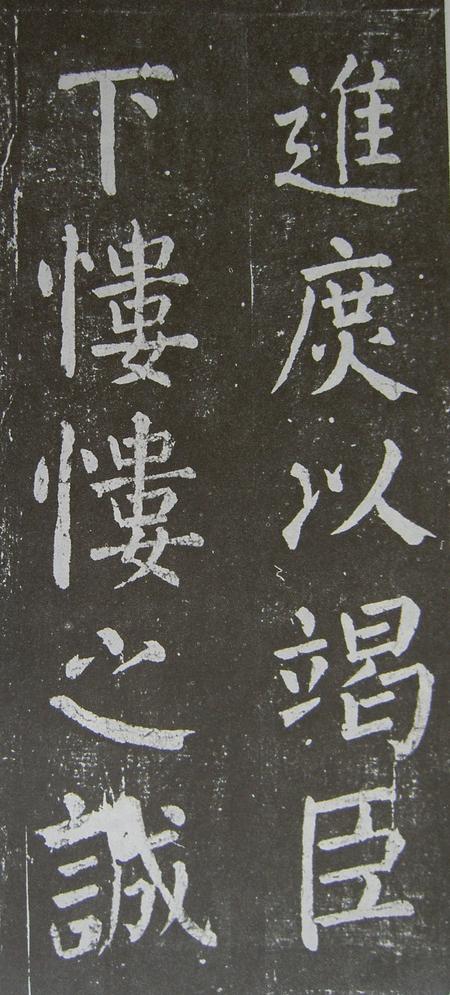 進庻以竭臣
下慺慺之誠